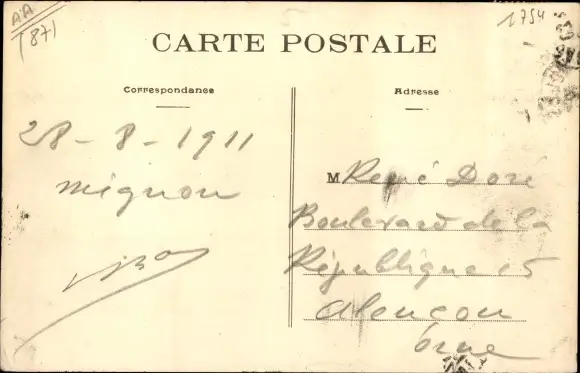 AA
(87)
1754
CARTE POSTALE
Correspondance
Adresse
28-8-1911
mignon
M René Doré
Boulevard de la
République 15
Alençon
Orne